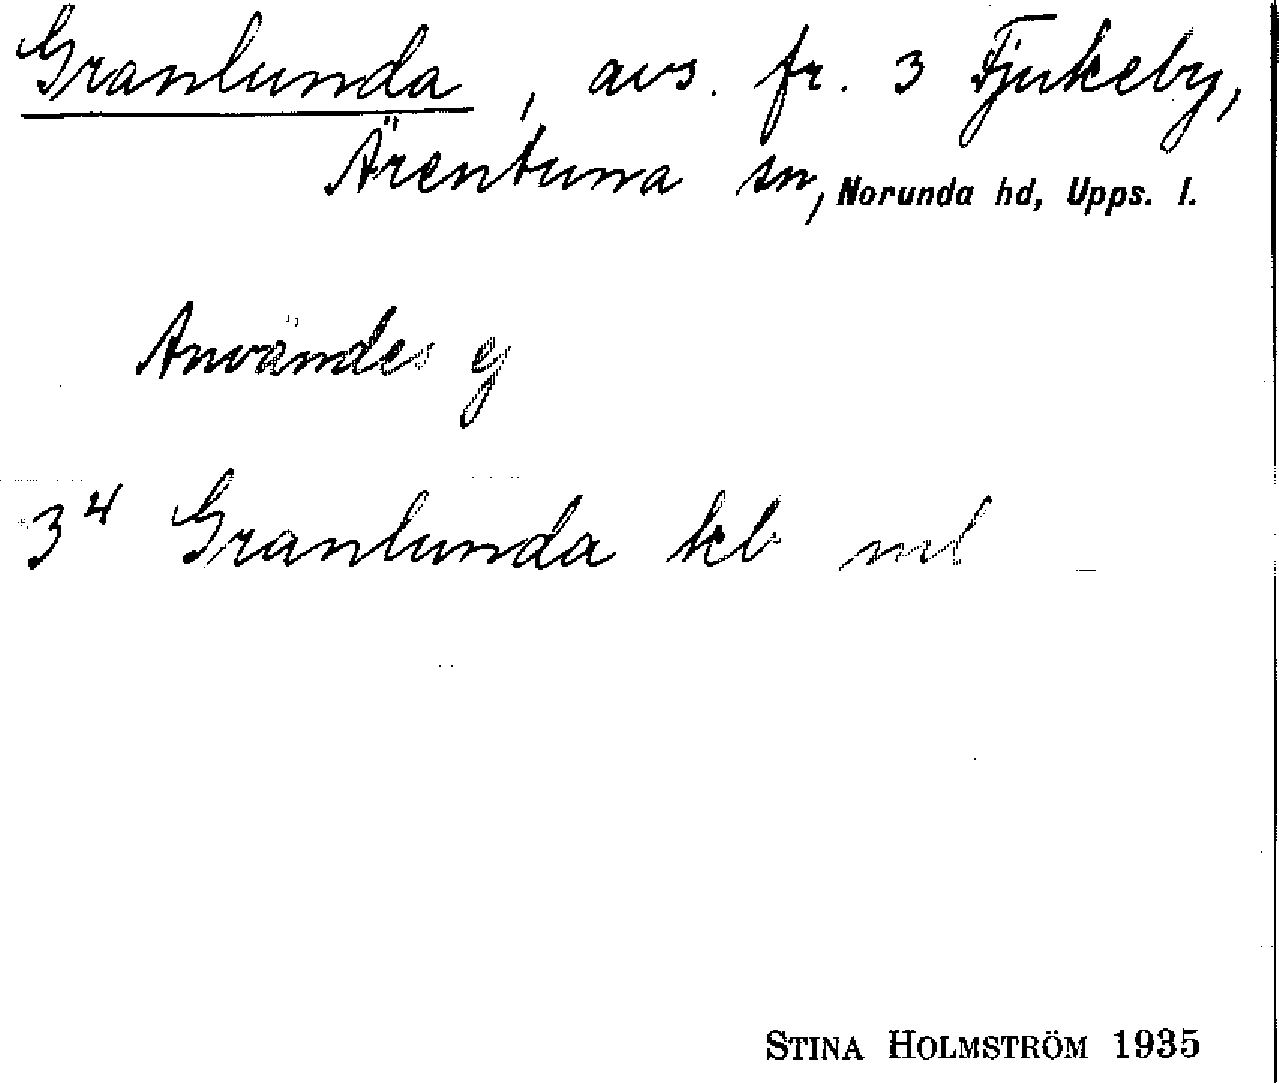 Granlunda, avs. fr. 3 Fjukeby,
Ärentuna sn, Norunda hd, Upps. l.
Användes ej
3⁴ Granlunda kb ml
STINA HOLMSTRÖM 1935